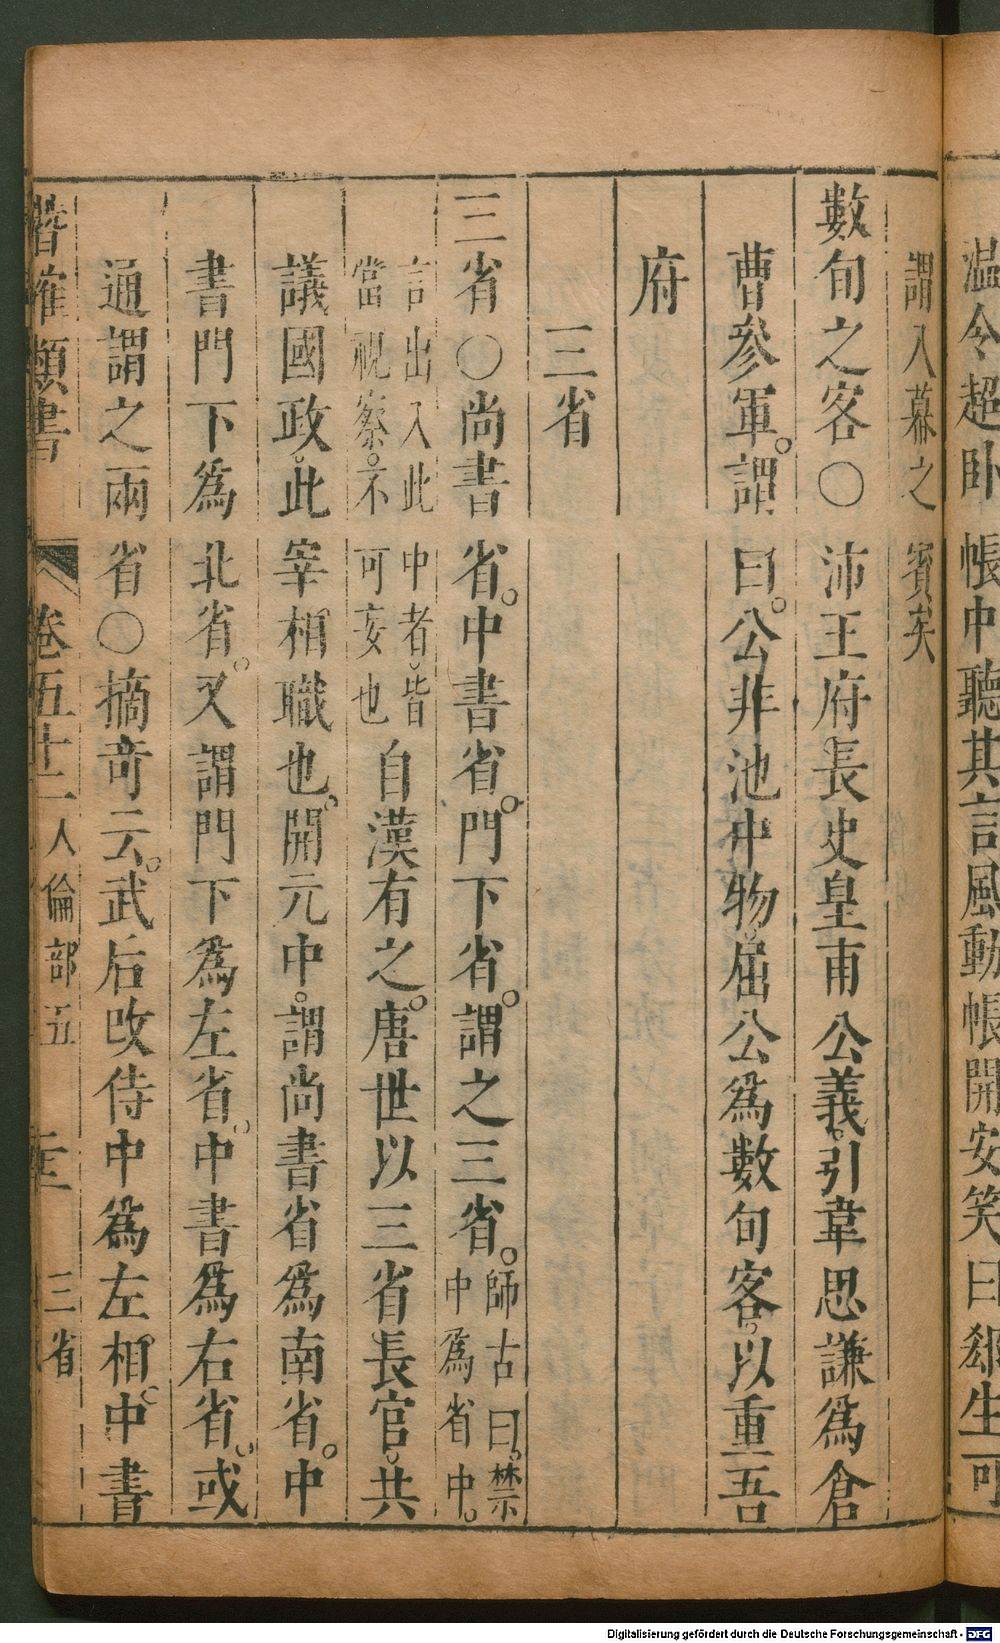 溫令超卧帳中聽其言風動帳開安笑曰郄生可
謂入幕之賓矣
數旬之客○沛王府長史皇甫公義。引韋思謙爲倉
曹參軍。謂曰。公非池中物。屈公爲數旬客。以重吾
府
三省
三省○尚書省。中書省。門下省。謂之三省。師古曰。禁中爲省中。
言出入此中者。皆當視察。不可妄也自漢有之。唐世以三省長官。共
議國政。此宰相職也。開元中。謂尚書省爲南省。中
書門下爲北省。又謂門下爲左省。中書爲右省。或
通謂之兩省○摘奇云。武后改侍中爲左相。中書
潛確類書 卷五十二 人倫部五 三省
Digitalisierung gefördert durch die Deutsche Forschungsgemeinschaft - DFG